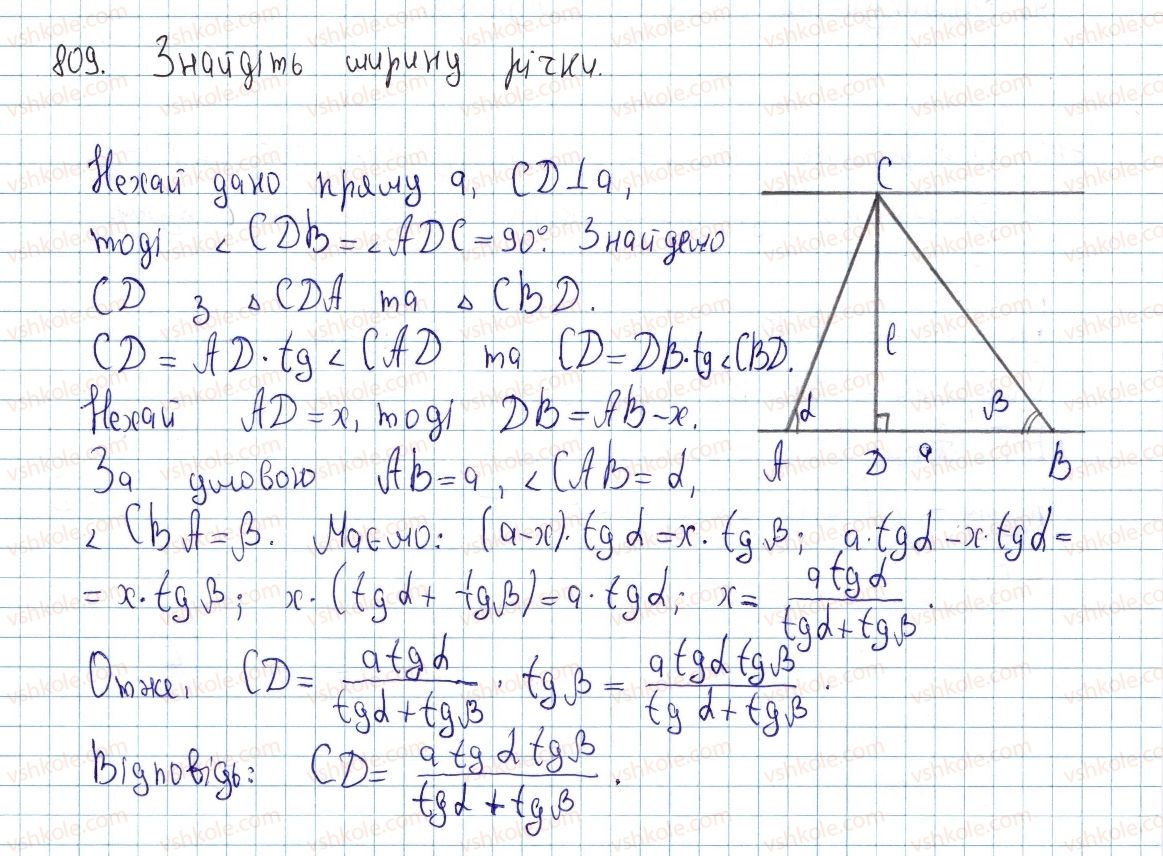 809. Знайдіть ширину річки.
Нехай дано пряму a, CD⊥a,
тоді ∠CDB=∠ADC=90°. Знайдемо
CD з △CDA та △CBD.
CD = AD·tg∠CAD та CD=DB·tg∠CBD.
Нехай AD=x, тоді DB=AB-x.
За умовою AB=a, ∠CAB=α,
∠CBA=β. Маємо: (a-x)·tgα=x·tgβ; a·tgα-x·tgα=
=x·tgβ; x·(tgα+tgβ)=a·tgα; x= a tgα / (tgα+tgβ).
Отже, CD= a tgα / (tgα+tgβ) · tgβ = a tgα tgβ / (tgα+tgβ).
Відповідь: CD= a tgα tgβ / (tgα+tgβ).
C
ℓ
α
β
A
D
a
B
vshkole.com